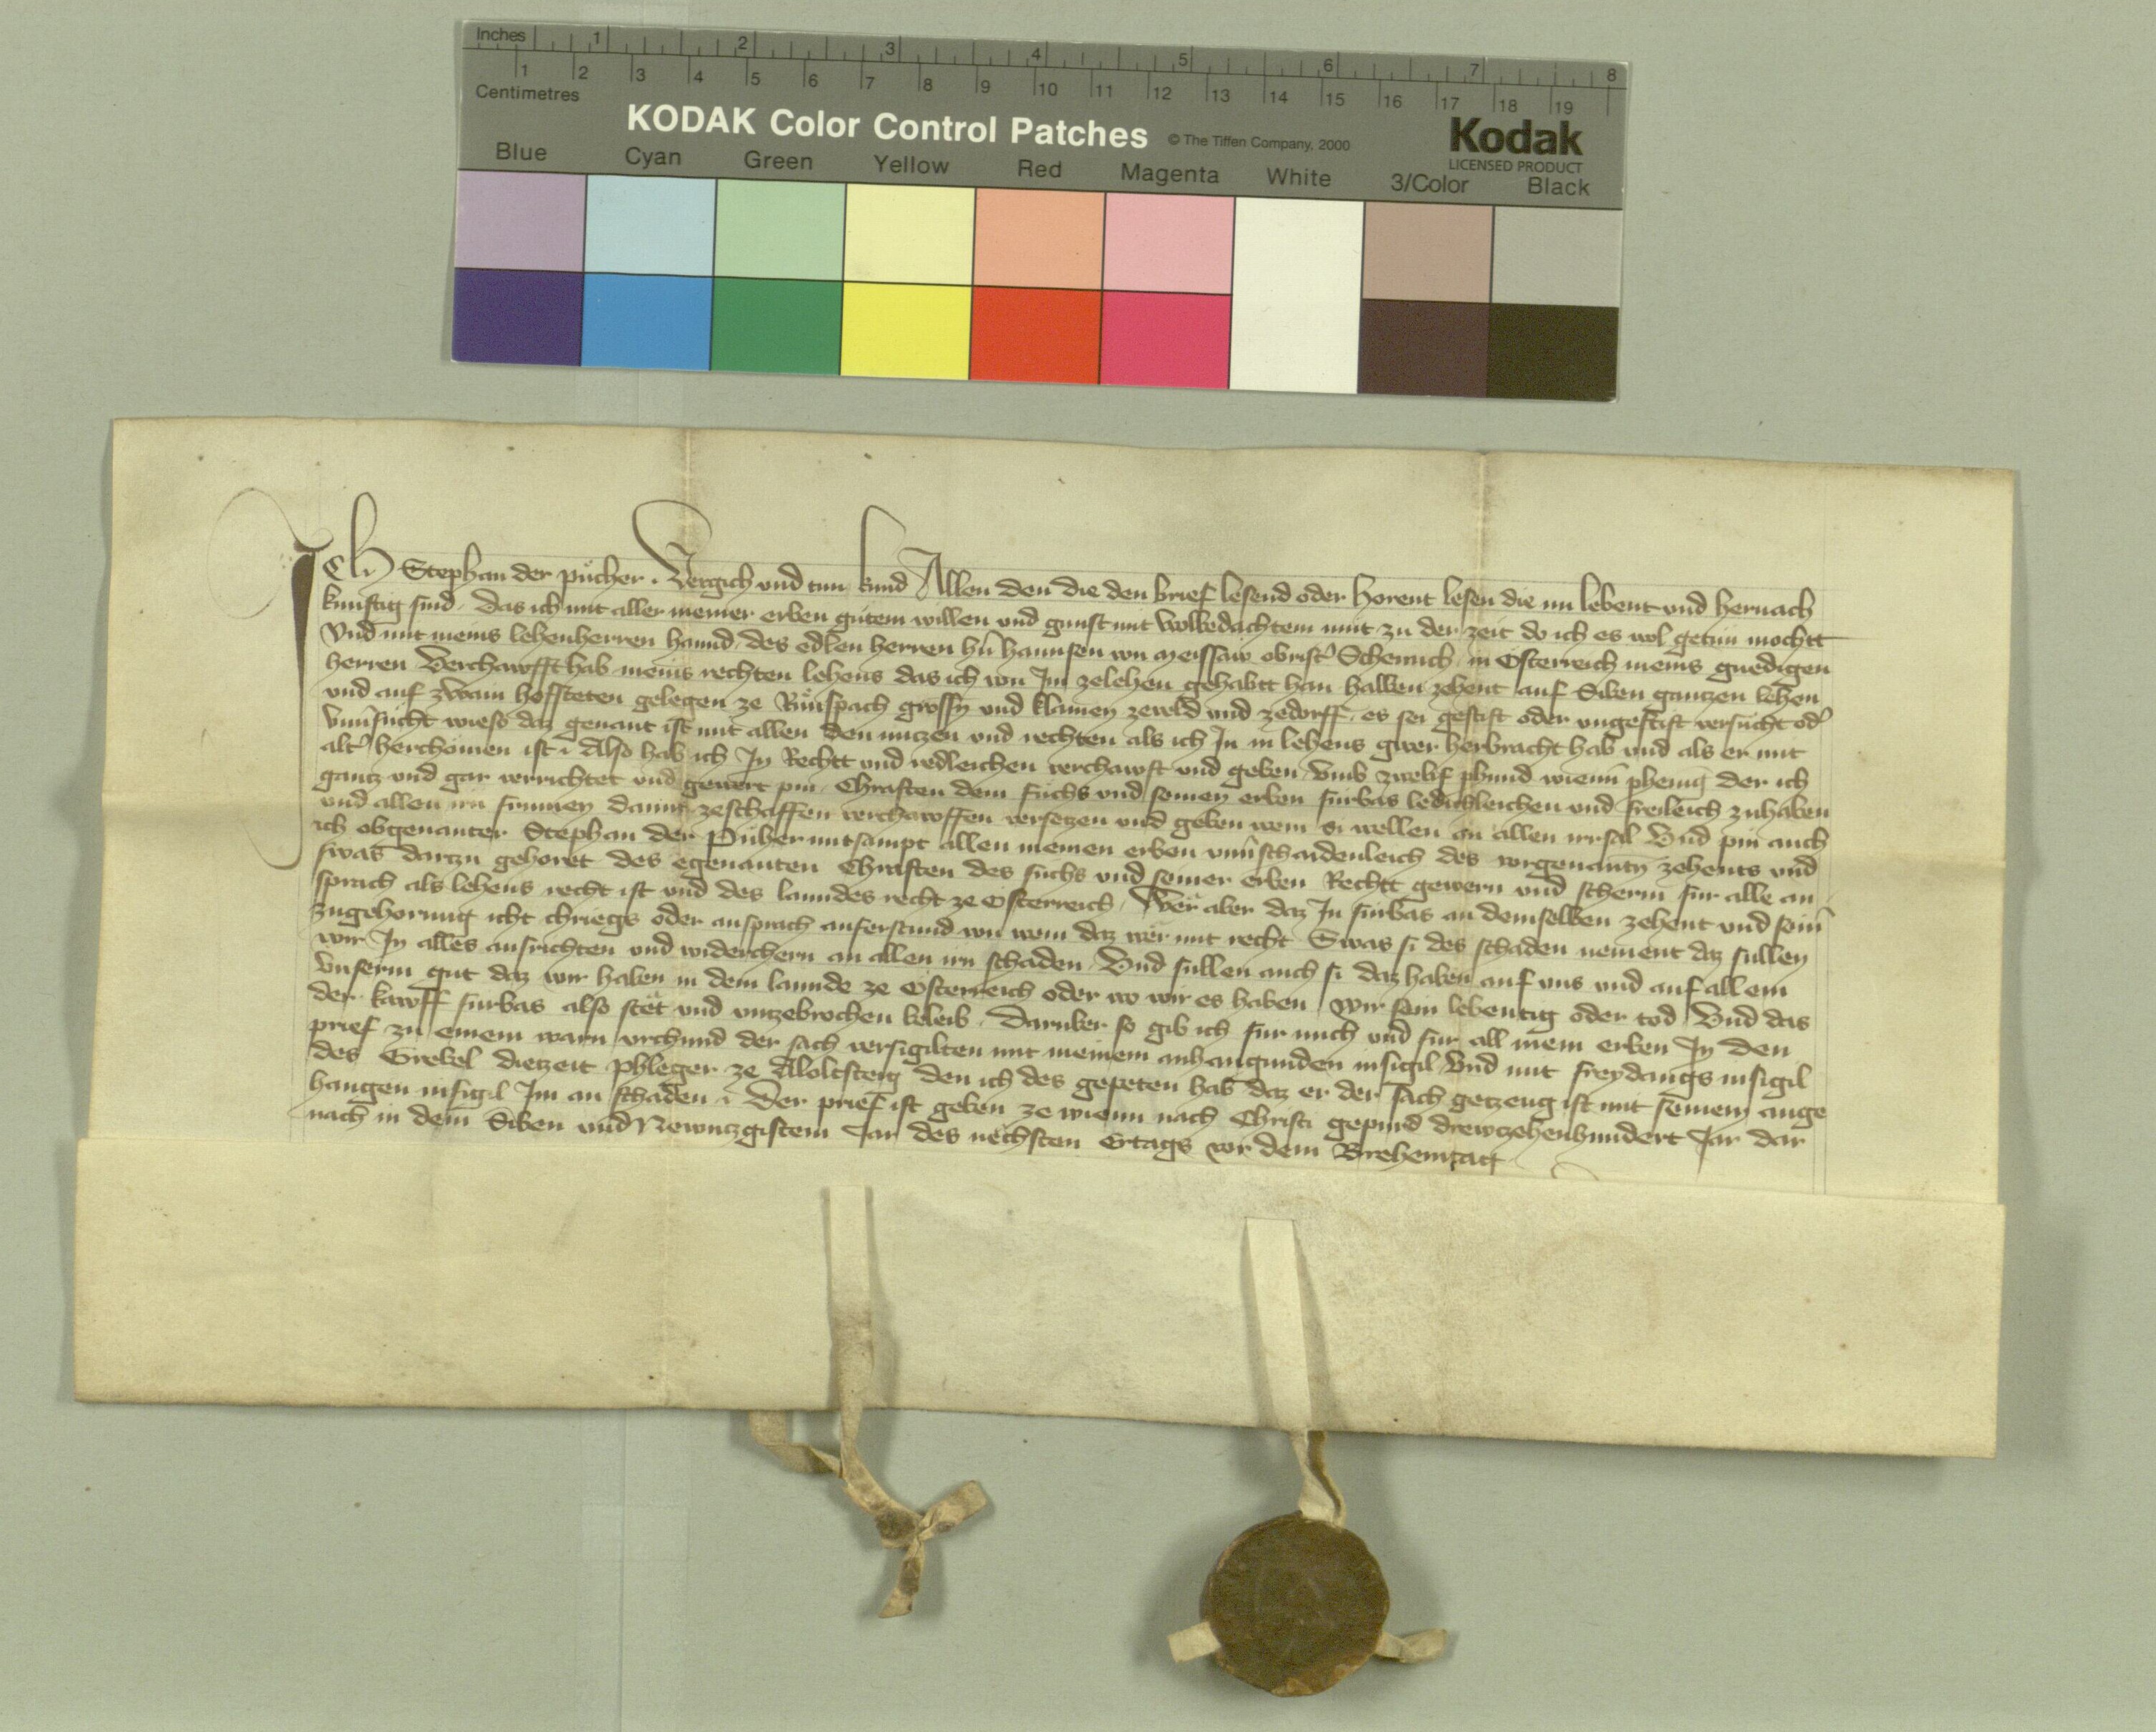 Inches 1 2 3 4 5 6 7 8
1 2 3 4 5 6 7 8 9 10 11 12 13 14 15 16 17 18 19
Centimetres
KODAK Color Control Patches © The Tiffen Company, 2000 Kodak
LICENSED PRODUCT
Blue Cyan Green Yellow Red Magenta White 3/Color Black
Ich Stephan der pücher. Vergich und tun kund Allen den die den brief lesend oder horent lesen die nu lebent und hernach
kunftig sind. Das ich mit aller meiner erben gütem willen und gunst mit wolbedachtem mut zu der zeit do ich es wol getun mochtt
Und mit meins lehenherren hannd, des edlen herren hn̄ hannsen von meissaw obrist Schennch in Osterreich meins gnedigen
herren Verchawfft hab meins rechten lehens das ich von Im zelehen gehabtt han halben zehent auf Siben gantzen lehen
und auf zwain hofsteten gelegen ze grossn und klainen zeveld und zedorff, es sei gestift oder ungestift versucht od
unv̄sücht wieso daz genant ist mit allen den nutzen und rechten als ich In in lehens gwer herbracht hab und als er mit
alt herchomen ist Also hab ich In Rechtt und redleichen verchawft und geben, Umb zwelif phund wienn̄ phenig der ich
gantz und gar verrichtet und gewert pin, Chraften dem füchs und seinen erben fürbas ledichleichen und freileich zuhaben
und allen irn frumen damit zeschaffen verchawffen versetzen und geben wem si wellen an allen irrsal Und pin auch
ich obgenanter Stephan der Püher mitsampt allen meinen erben unv̄schaidenleich des vorgenantn zehents und
swas darzu gehoret des egenanten Chraften des fuchs und seiner erben Rechtt gewern und scherm für alle an
sprach als lehens recht ist und des lanndes recht ze Osterreich, Wer aber daz In fürbas an demselben zehent und sein̄
zugehorung icht chriegs oder ansprach auferstund von wem daz wer mit recht Swas si des schaden nement daz sullen
wir In alles ausrichten und widerchern an allen irn schaden, Und sullen auch si daz haben auf uns und auf allem
unserm gut daz wir haben in dem lannde ze Osterreich oder wo wir es haben, Wir sein lebentig oder tod, Und das
der kawff fürbas also stet und unzebrochen beleib, Darüber so gib ich fur mich und für all mein erben In den
prief zu einem warn urchund der sach versigilten mit meinem anhangunden insigil Und mit freydangs insigil
des Grebel dietzeit phleger ze den ich des gepeten hab daz er der sach getzeug ist mit seinem ange
hangen insigil Im an schaden Der prief ist geben ze wienn nach Christi gepurd drewtzehenhundert Jar dar
nach in dem Siben und Newntzgistem Jar des nechsten Ertags vor dem Prehemtag